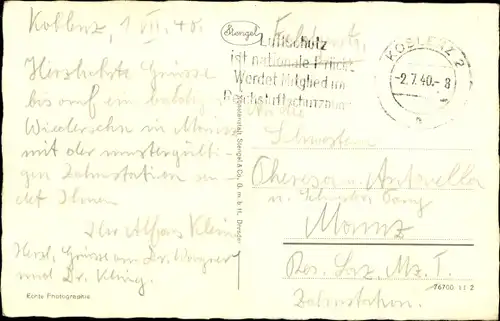 Koblenz, 1. VII. 40.
Herzlichste Grüsse
bis auf ein baldiges
Wiedersehn in Mainz
mit der mustergülti-
gen Zahnstation sen-
det Ihnen
Ihr Alfons Kling
Herzl. Grüsse an Dr. Wagner
und Dr. Kling.
Echte Photographie
Stengel
Stengel & Co., G. m. b. H., Dresden
Feldpost
Luftschutz
ist nationale Pflicht
Werdet Mitglied im
Reichsluftschutzbund
KOBLENZ 2
-2.7.40.-8
a
An die
Schwestern
Theresa u.
u.
Mainz
Res. Laz. Mz. I.
Zahnstation.
76700 11 2